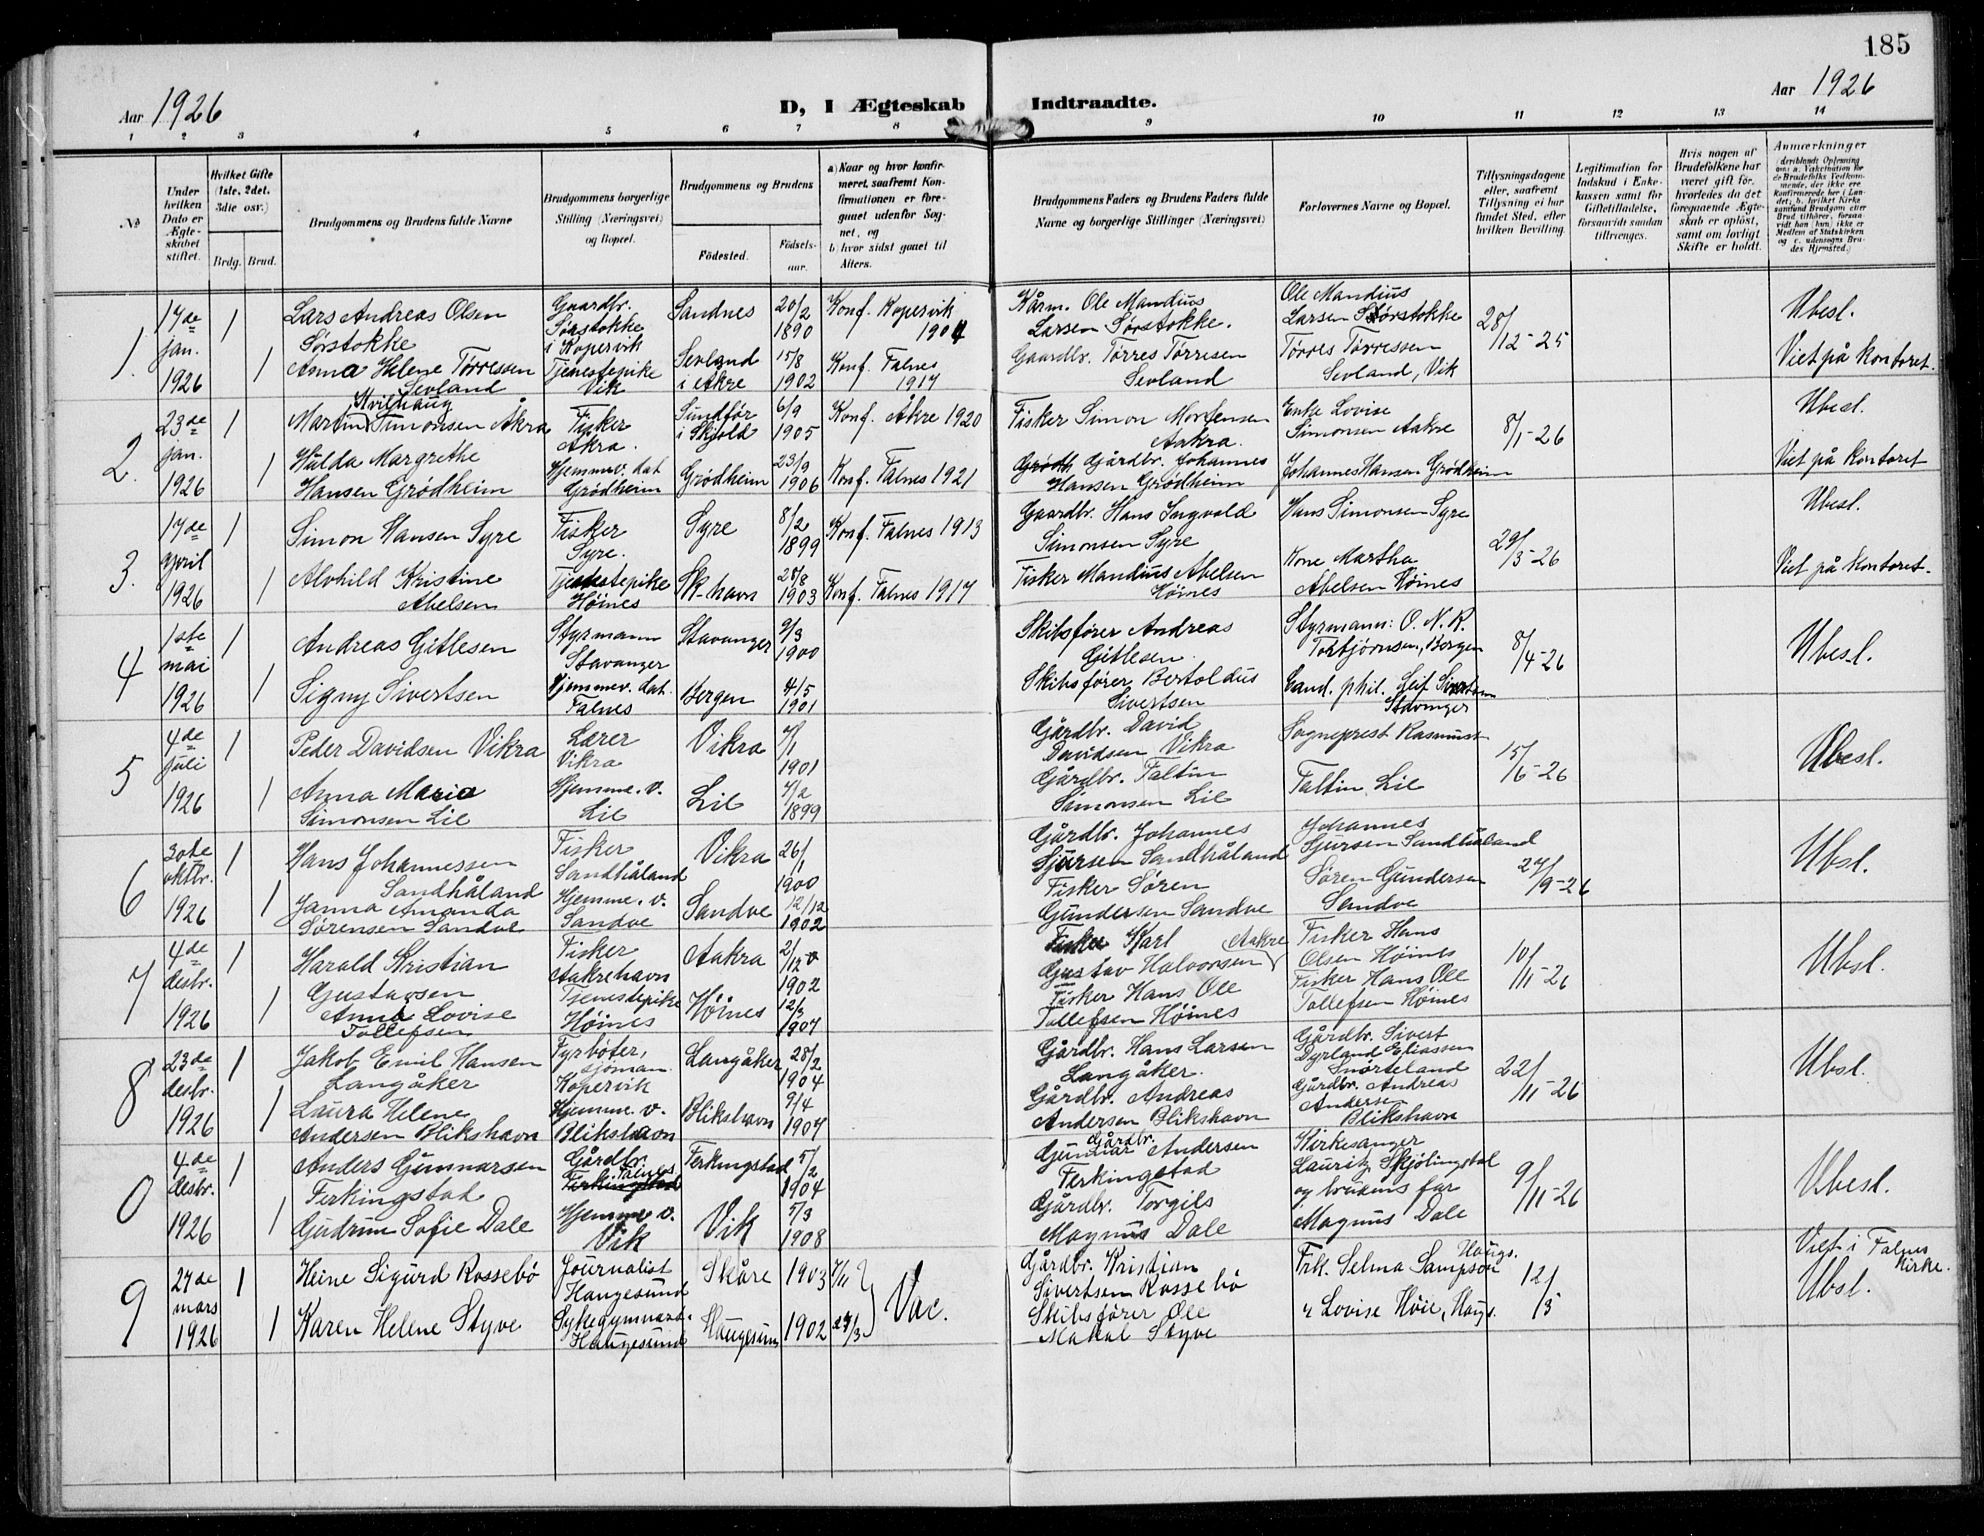 185
Aar 1926
D, I Ægteskab Indtraadte.
Aar 1926
1 2 3 4 5 6 7 8 9 10 11 12 13 14
No
Under hvilken Dato er Ægteskabet stiftet.
Hvilket Gifte (1ste, 2det, 3die osv.)
Brdg. Brud.
Brudgommens og Brudens fulde Navne
Brudgommens borgerlige Stilling (Næringsvei) og Bopæl.
Brudgommens og Brudens
Fødested. Fødsels-aar.
a) Naar og hvor konfirmeret, saafremt Konfirmationen er foregaaet udenfor Sognet, og
b) hvor sidst gaaet til Alters.
Brudgommens Faders og Brudens Faders fulde Navne og borgerlige Stillinger (Næringsvei)
Forlovernes Navne og Bopæl.
Tillysningsdagene eller, saafremt Tillysning ei har fundet Sted, efter hvilken Bevilling.
Legitimation for Indskud i Enkekassen samt for Giftetilladelse, forsaavidt saadan tiltrænges.
Hvis nogen af Brudefolkene har været gift før, hvorledes da det foregaaende Ægteskab er opløst, samt om lovligt Skifte er holdt.
Anmærkninger
1. 17de jan. 1926
1 Lars Andreas Olsen Sørstokke
Gaardbr. Sørstokke i Kopervik
Sandnes 20/2 1890
Konf. Kopervik 1904
Kårm. Ole Mandius Larsen Sørstokke.
Ole Mandius Larsen Sørstokke
28/12-25
Ubesl.
1 Anna Helene Tørressen Sevland
Tjenestepike Vik
Sevland i Akre 15/8 1902
Konf. Falnes 1917
Gaardbr. Tørres Tørrisen Sevland
Tørres Tørressen Sevland, Vik
Viet på kontoret.
2. 23de jan. 1926
1 Martin Kvilhaug Simonsen Åkra
Fisker Akra.
Sundfør i Skjold 6/9 1905
Konf. Åkre 1920
Fisker Simon Mortensen Aakra.
Enke Lovise Simonsen Aakre
8/1-26
Ubesl.
1 Hulda Margrethe Hansen Grødheim
Hjemmev. dat Grødheim
Grødheim 23/9 1906
Konf. Falnes 1921
Grødh Gårdbr. Johannes Hansen Grødheim
Johannes Hansen Grødheim
Viet på kontoret
3. 17de april 1926
1 Simon Hansen Syre
Fisker Syre.
Syre 8/2 1899
Konf. Falnes 1913
Gaardbr. Hans Ingvald Simonsen Syre
Hans Simonsen Syre
29/3-26
Ubesl.
1 Alvhild Kristine Abelsen
Tjenestepike Høines
Sk.havn 28/8 1903
Konf. Falnes 1917
Fisker Mandius Abelsen Høines
Kone Martha Abelsen Høines
Viet på kontoret.
4 1ste mai 1926
1 Andreas Gitlesen
Styrmann Stavanger
Stavanger 9/3 1900
Skibsfører Andreas Gitlesen.
Styrmann: O. N. R. Torbjørnsen, Bergen
8/4-26
Ubesl.
1 Signy Sivertsen
Hjemmev. dat. Falnes
Bergen 4/5 1901
Skibsfører Bertoldus Sivertsen
Cand. phil. Leif Sivertsen Stavanger
5 4de juli 1926
1 Peder Davidsen Vikra
Lærer Vikra
Vikra 7/1 1901
Gårdbr. David Davidsen Vikra
Sogneprest Rasmussen
15/6-26
Ubesl.
1 Anna Maria Simonsen Lie
Hjemme. v. Lie
Lie 1899
Gårdbr. Faltin Simonsen Lie
Faltin Lie
6 30te oktbr. 1926
1 Hans Johannessen Sandhåland
Fisker Sandhåland
Vikra 26/1 1900
Gårdbr. Johannes Sjursen Sandhåland
Johannes Sjursen Sandhåland
27/9-26
Ubsl.
1 Janna Amanda Sørensen Sandve
Hjemme. v. Sandve
Sandve 12/12 1902
Fisker Søren Gundersen Sandve
Søren Gundersen Sandve
7 4de desbr. 1926
1 Harald Kristian Gustavsen
Fisker Aakrehavn
Aakra 2/12 1902
Fisker Karl Gustav Halvorsen Aakre
Fisker Hans Olsen Høines
10/11-26
Ubsl.
1 Anna Lovise Tollefsen
Tjenestepike Høines
Høines 12/3 1907
Fisker Hans Ole Tollefsen Høines
Fisker Hans Ole Tollefsen Høines
8 23de desbr. 1926
1 Jakob Emil Hansen Langåker
Fyrbøter, sjømann Kopervik
Langåker 28/2 1904
Gårdbr. Hans Larsen Langåker.
Gårdbr. Sivert Dyrland Eliassen Snørteland
22/11-26
Ubsl.
1 Laura Helene Andersen Blikshavn
Hjemme. v. Blikshavn
Blikshavn 9/4 1907
Gårdbr. Andreas Andersen Blikshavn
Gårdbr. Andreas Andersen Blikshavn
0 4de desbr. 1926
1 Anders Gunnarsen Ferkingstad
Gårdbr. Falnes Ferkingstad
Ferkingstad 5/2 1904
Gårdbr. Gunnar Andersen Ferkingstad
Kirkesanger Lauritz Skjølingstad og brudens far
9/11-26
Ubesl.
1 Gudrun Sofie Dale
Hjemme v. Vik
Vik 5/3 1908
Gårdbr. Torgils Magnus Dale
Magnus Dale
9 27de mars 1926
1 Heine Sigurd Rossebø
Journalist Haugesund
Skåre 1903 7/11
Vac.
Gårdbr. Kristian Sivertsen Rossebø
Frk. Selma Sampson Haugs.
12/3
Viet i Falnes kirke.
Ubsl.
1 Karen Helene Styve
Sykegymnast. Haugesund
Haugesund 1902 27/3
Skibsfører Ole Makal Styve
" Lovise Høie, Haugs.